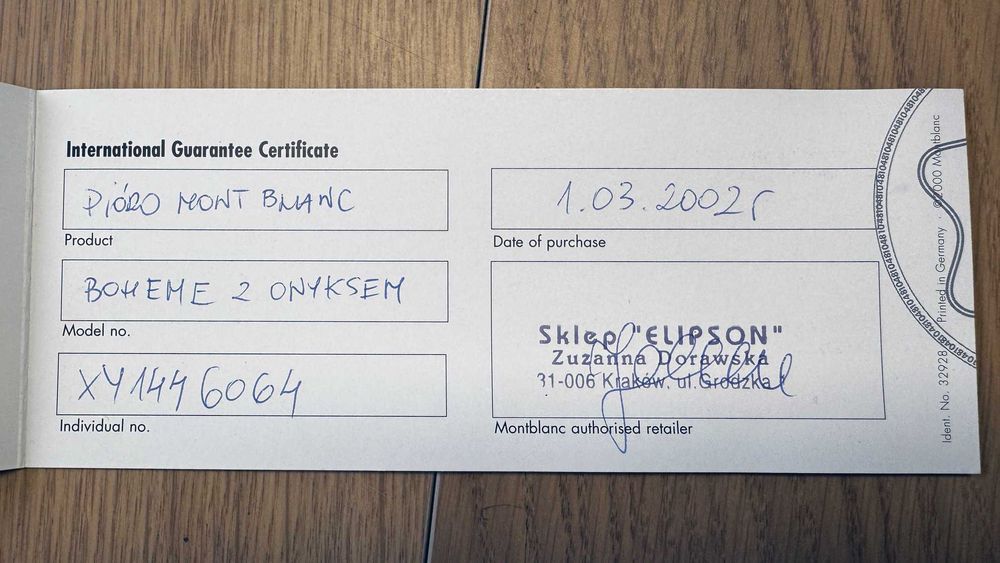 International Guarantee Certificate
PIÓRO MONT BLANC
Product
BOHEME Z ONYKSEM
Model no.
XY1446064
Individual no.
1.03.2002r
Date of purchase
Sklep "ELIPSON"
Zuzanna Dorawska
31-006 Kraków, ul.Grodzka
Montblanc authorised retailer
Ident. No. 32928 Printed in Germany · ©2000 Montblanc